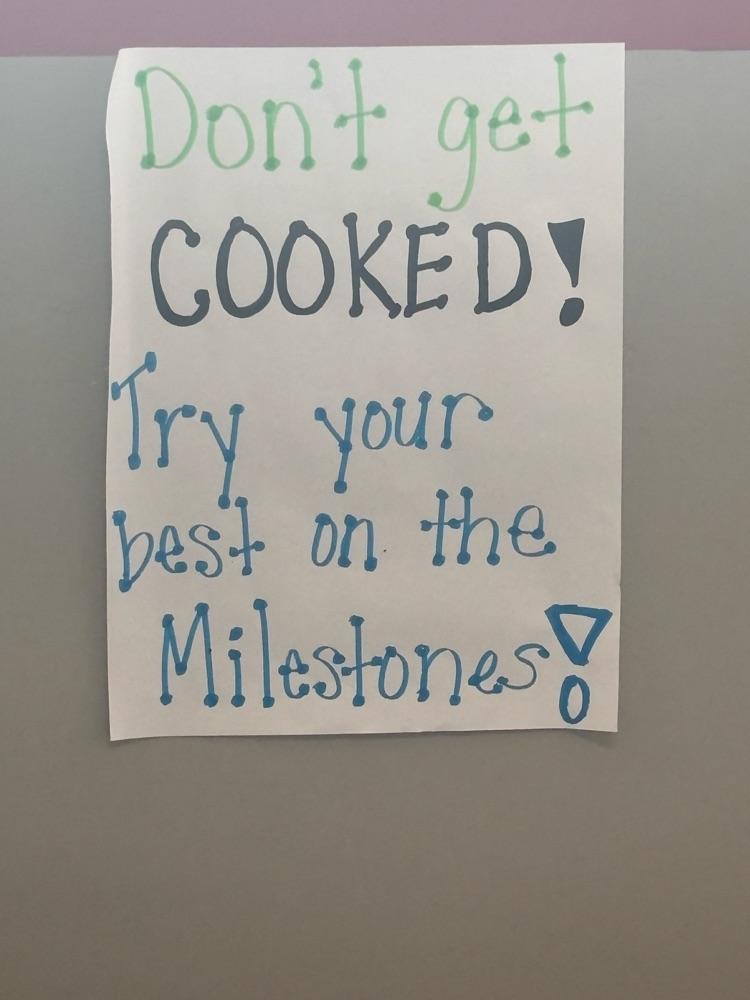 Don't get
COOKED!
Try your
best on the
Milestones!